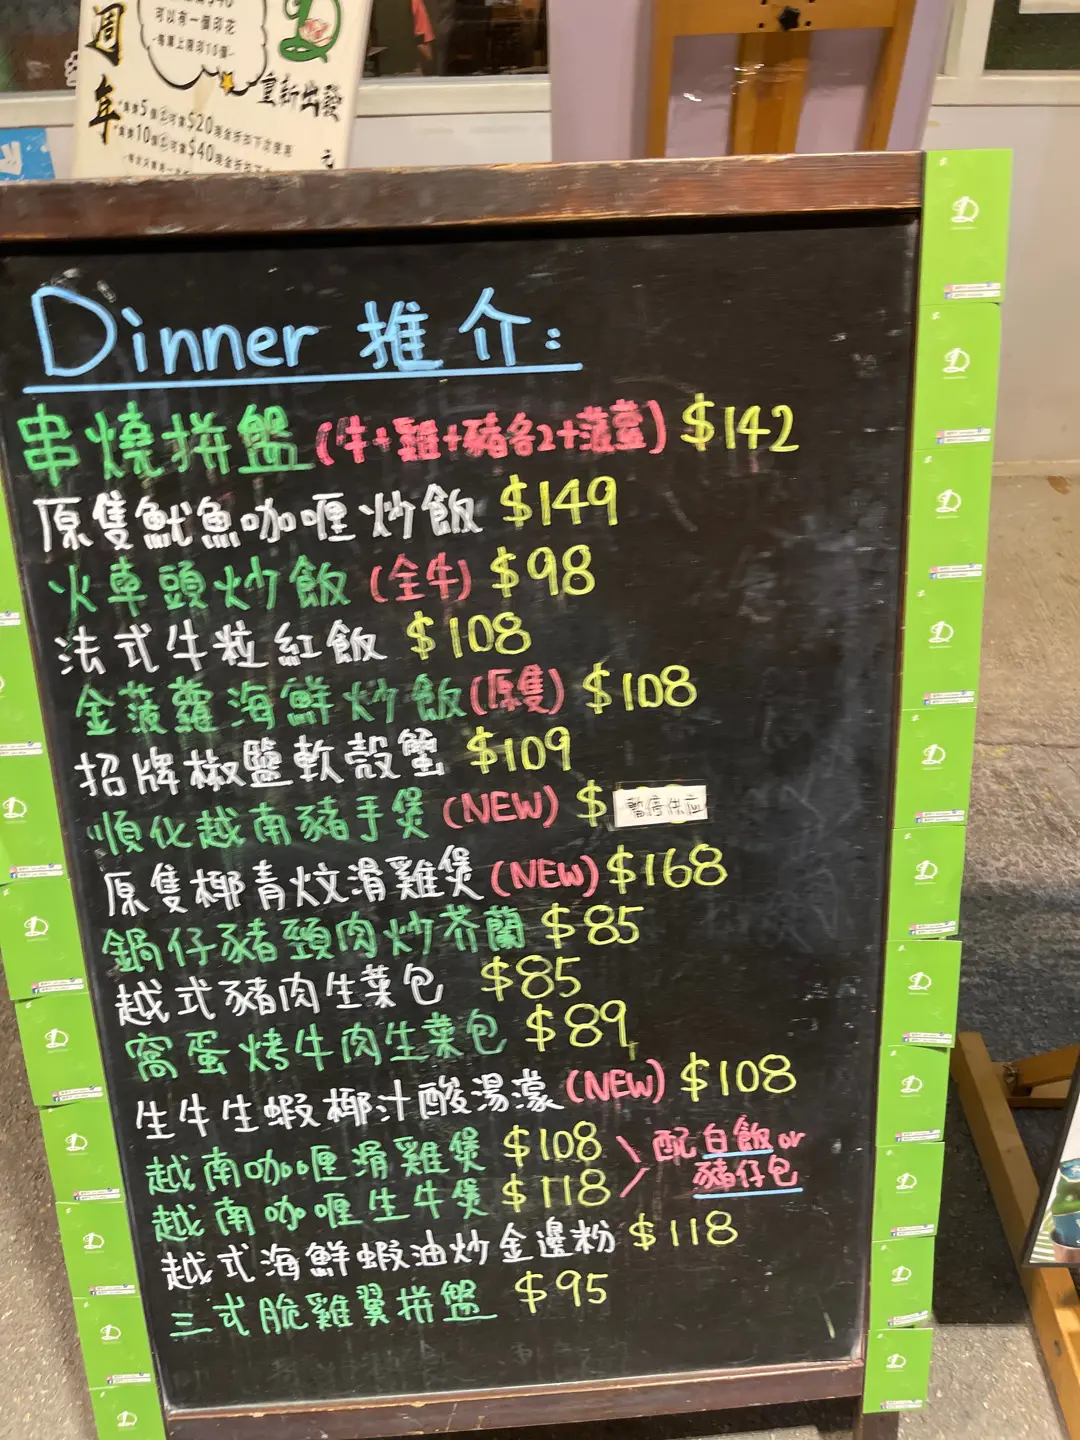 可以有一個印花
-每單上限印10個-
週年
重新出發
$20現金折扣下次使用
$40
Dinner 推介:
串燒拼盤(牛+雞+豬各2+菠蘿) $142
原隻魷魚咖喱炒飯 $149
火車頭炒飯(全牛) $98
法式牛粒紅飯 $108
金菠蘿海鮮炒飯(原隻) $108
招牌椒鹽軟殼蟹 $109
順化越南豬手煲(NEW) $暫停供应
原隻椰青炆滑雞煲(NEW) $168
鍋仔豬頸肉炒芥蘭 $85
越式豬肉生菜包 $85
窩蛋烤牛肉生菜包 $89
生牛生蝦椰汁酸湯濛(NEW) $108
越南咖喱滑雞煲 $108
越南咖喱生牛煲 $118
配白飯or
豬仔包
越式海鮮蝦油炒金邊粉 $118
三式脆雞翼拼盤 $95